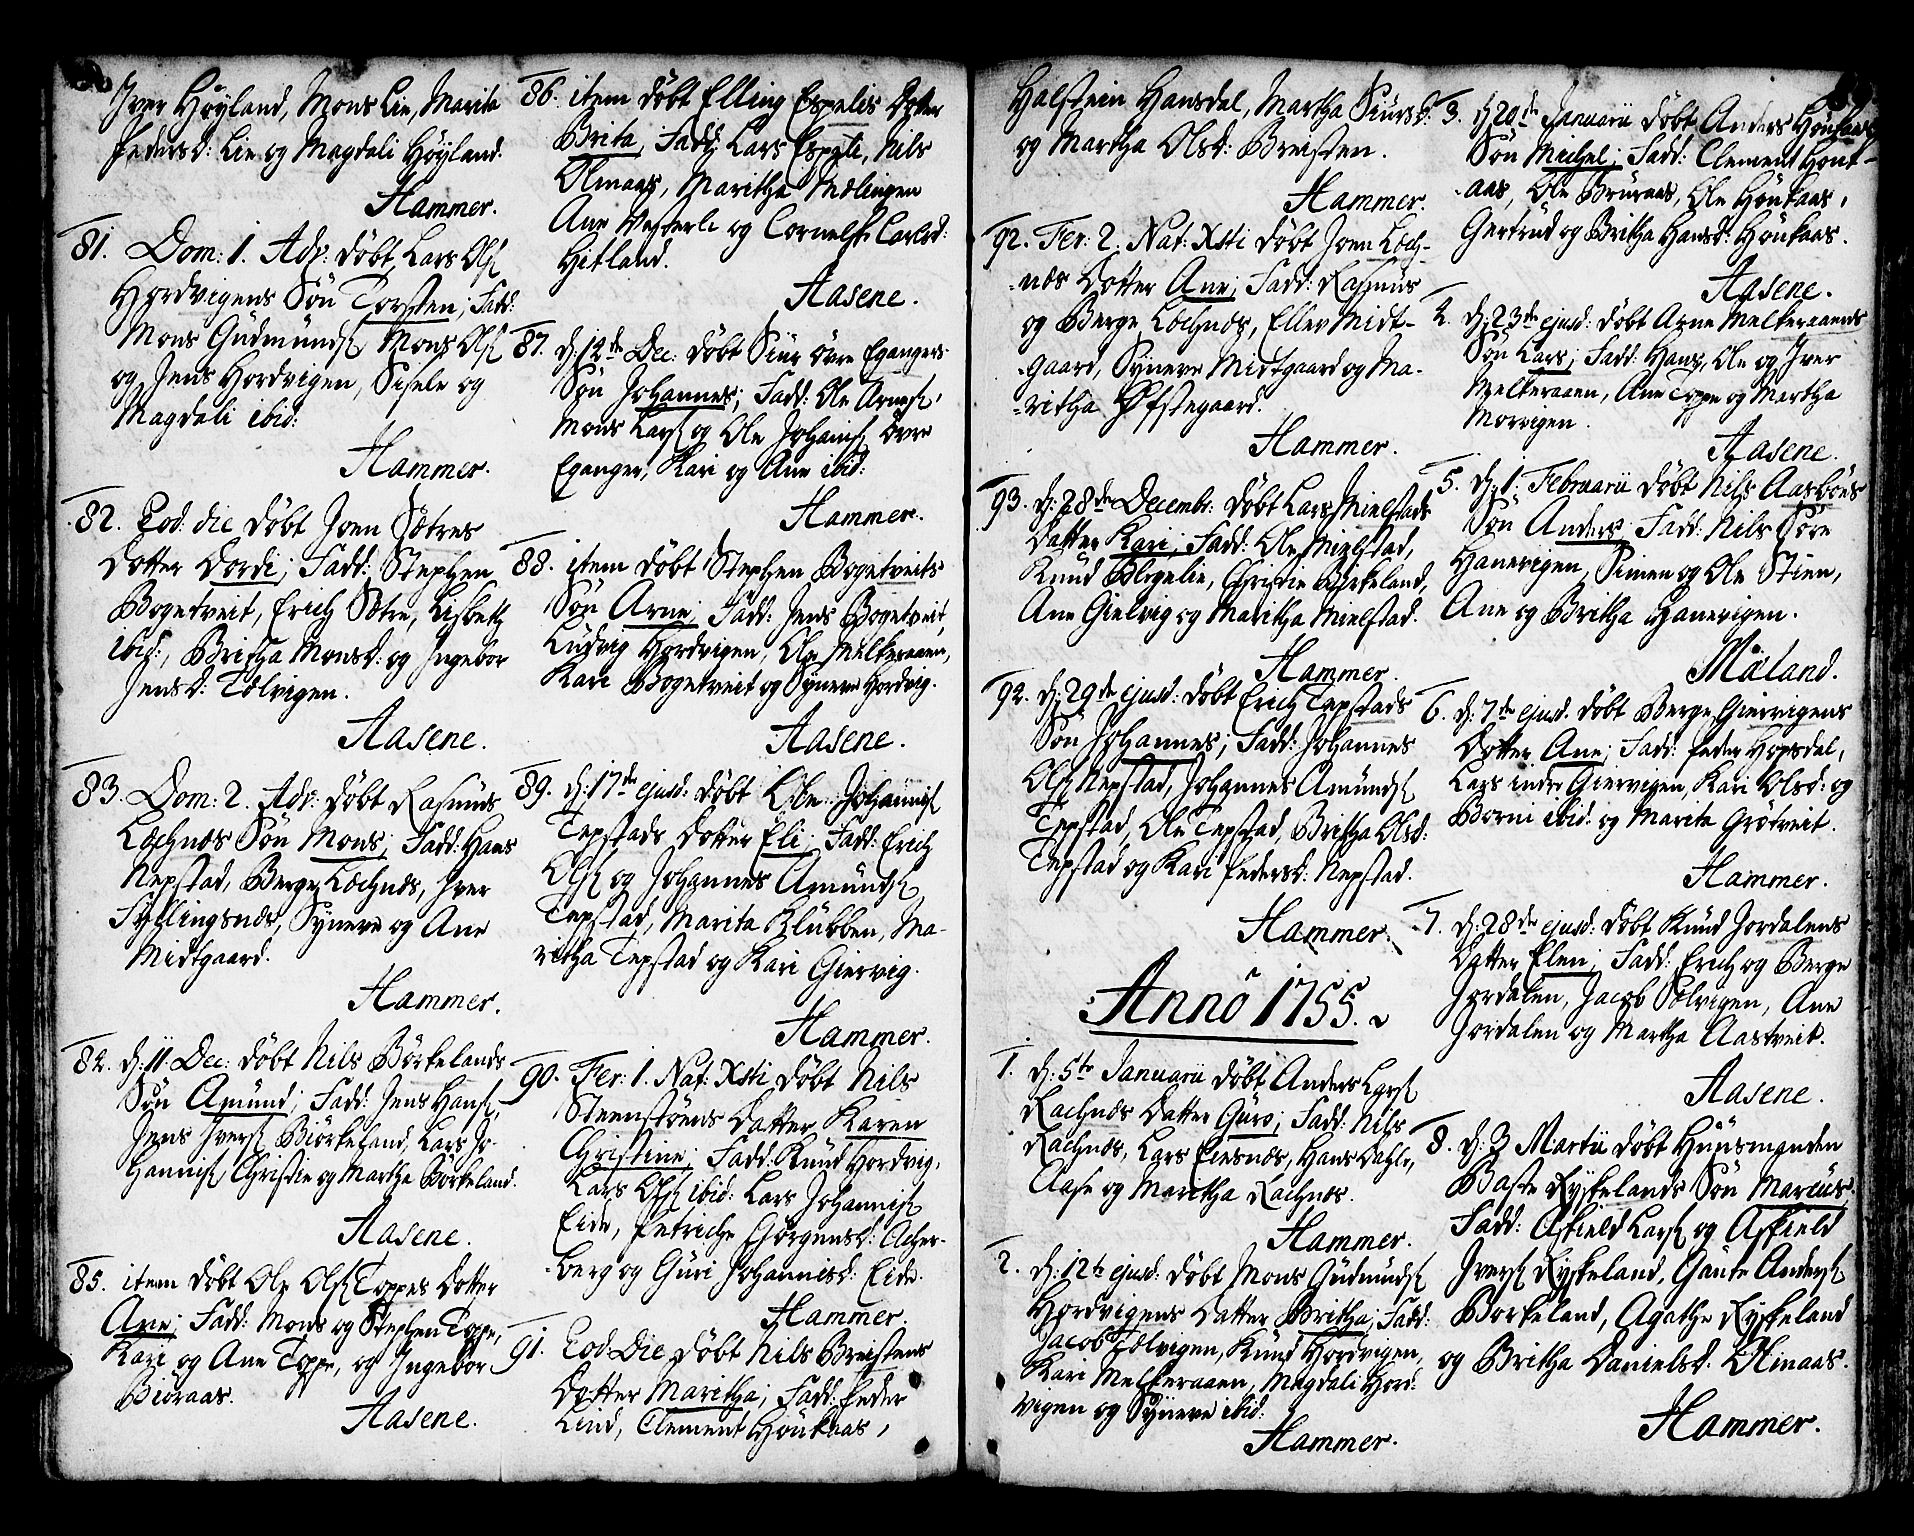 Iver Höyland, Mons Lie, Marita
Pedersd: Lie og Magdali Höyland.
Hammer.
81. Dom: 1. Adv: döbt Lars Ols.
Hordvigens Sön Torsten; Fadd:
Mons Gudmunds. Mons Ols.
og Jens Hordvigen, Sisele og
Magdali ibid:
Hammer.
82. Eod: die döbt Joen Sötres
Dotter Dordi; Fadd: Stephen
Bogetveit, Erich Sötre, Lisbeth
ibid:, Britha Monsd: og Ingebor
Jensd: Tolvigen.
Aasene.
83. Dom: 2. Adv: döbt Rasmus
Lochnæs Sön Mons; Fadd: Hans
Nepstad, Berge Lochnæs, Iver
Fyllingsnæs, Syneve og Ane
Midtgaard.
Hammer.
84. d: 11 Dec: döbt Nils Börkelands
Sön Amund; Fadd: Jens Hans.,
Jens Ivers. Biörkeland, Lars Jo-
hannis. Christie og Martha Börkeland.
Aasene.
85. item döbt Ole Ols. Toppes Dotter
Ane; Fadd: Mons og Stephen Toppe,
Kari og Ane Toppe, og Ingebor
Bioraas.
Aasene.
86. item döbt Elling Espelis Dotter
Brita, Fadd: Lars Espeli, Nils
Olmaas, Maritha Mælingen
Ane Vesterli og Cornels. Carlsd:
Hitland.
Aasene.
87. d: 12te Dec: döbt Siur övre Egangers
Sön Johannes; Fadd: Ole Arnes.,
Mons Lars. og Ole Johanis. övre
Eganger, Kari og Ane ibid:
Hammer.
88. item döbt Stephen Bogetveits
Sön Arne; Fadd: Jens Bogetveit,
Ludvig Hordvigen, Ole Melkeraaen,
Kari Bogetveit og Syneve Hordvig.
Aasene.
89. d: 17de ejusd: döbt Ole Johannis.
Tepstads Dotter Eli; Fadd: Erich
Ols. og Johannes Amunds.
Tepstad, Marita Klubben, Ma-
ritha Tepstad og Kari Giervig.
Hammer.
90. Fer: 1. Nat: Xsti döbt Nils
Steenstöens Datter Karen
Christine; Fadd: Knud Hordvig,
Lars Ols. ibid: Lars Johannis.
Eide, Petriche Görgensd: Acher-
berg og Guri Johannisd: Eide.
Hammer.
91. Eod: Die döbt Nils Breistens
Dotter Maritha; Fadd: Peder
Lind, Clement Höukaas,
Halstein Hansdal, Martha Siursd:
og Martha Olsd: Breisten.
Hammer.
92. Fer: 2. Nat: Xsti döbt Joen Loch-
næs Dotter Ane; Fadd: Rasmus
og Berge Lochnæs, Ellev Midt-
gaard, Syneve Midtgaard og Ma-
ritha Øfstegaard.
Hammer.
93. d: 28de Decembr: döbt Lars Mielstads
Datter Kari; Fadd: Ole Mielstad,
Knud Blegelie, Christie Birkeland,
Ane Gielvig og Maritha Mielstad.
Hammer.
94. d: 29de ejusd: döbt Erich Tepstads
Sön Johannes; Fadd: Johannes
Ols. Nepstad, Johannes Amunds.
Tepstad, Ole Tepstad, Britha Olsd:
Tepstad og Kari Pedersd: Nepstad.
Hammer.
Anno 1755.
1. d: 5te Januarii döbt Anders Lars.
Rachnæs Datter Guro; Fadd: Nils
Rachnæs, Lars Eiesnæs, Hans Dahle,
Aase og Maritha Rachnæs.
Hammer.
2. d: 12te ejusd: döbt Mons Gudmunds.
Hordvigens Datter Britha; Fadd:
Jacob Tolvigen, Knud Hordvigen,
Kari Melkeraaen, Magdali Hord-
vigen og Syneve ibid:
Hammer.
3. d: 20de Januarii döbt Anders Höukaas
Sön Michel; Fadd: Clement Höuk-
aas, Ole Bruraas, Ole Höukaas,
Gertrud og Britha Hansd: Höukaas.
Aasene.
4. d: 23de ejusd: döbt Arne Melkeraaens
Sön Lars; Fadd: Hans, Ole og Iver
Melkeraaen, Ane Toppe og Martha
Morvigen.
Aasene.
5. d: 1. Februarii döbt Nils Aasböes
Sön Anders; Fadd: Nils Söre
Hanevigen, Simen og Ole Stien,
Ane og Britha Hanevigen.
Måland.
6. d: 7de ejusd: döbt Berge Giervigens
Dotter Ane; Fadd: Peder Hopsdal,
Lars indre Giervigen, Kari Olsd: og
Borni ibid: og Marita Grötveit.
Hammer.
7. d: 28de ejusd: döbt Knud Jordalens
Datter Elen; Fadd: Erich og Berge
Jordalen, Jacob Solvigen, Ane
Jordalen og Martha Aastveit.
Aasene.
8. d: 3 Martii döbt Huusmanden
Baste Ryskelands Sön Marcus.
Fadd: Askield Lars. og Askield
Ivers. Ryskeland, Gaute Anders.
Borkeland, Agathe Ryskeland
og Britha Danielsd: Olmaas.
Hammer.